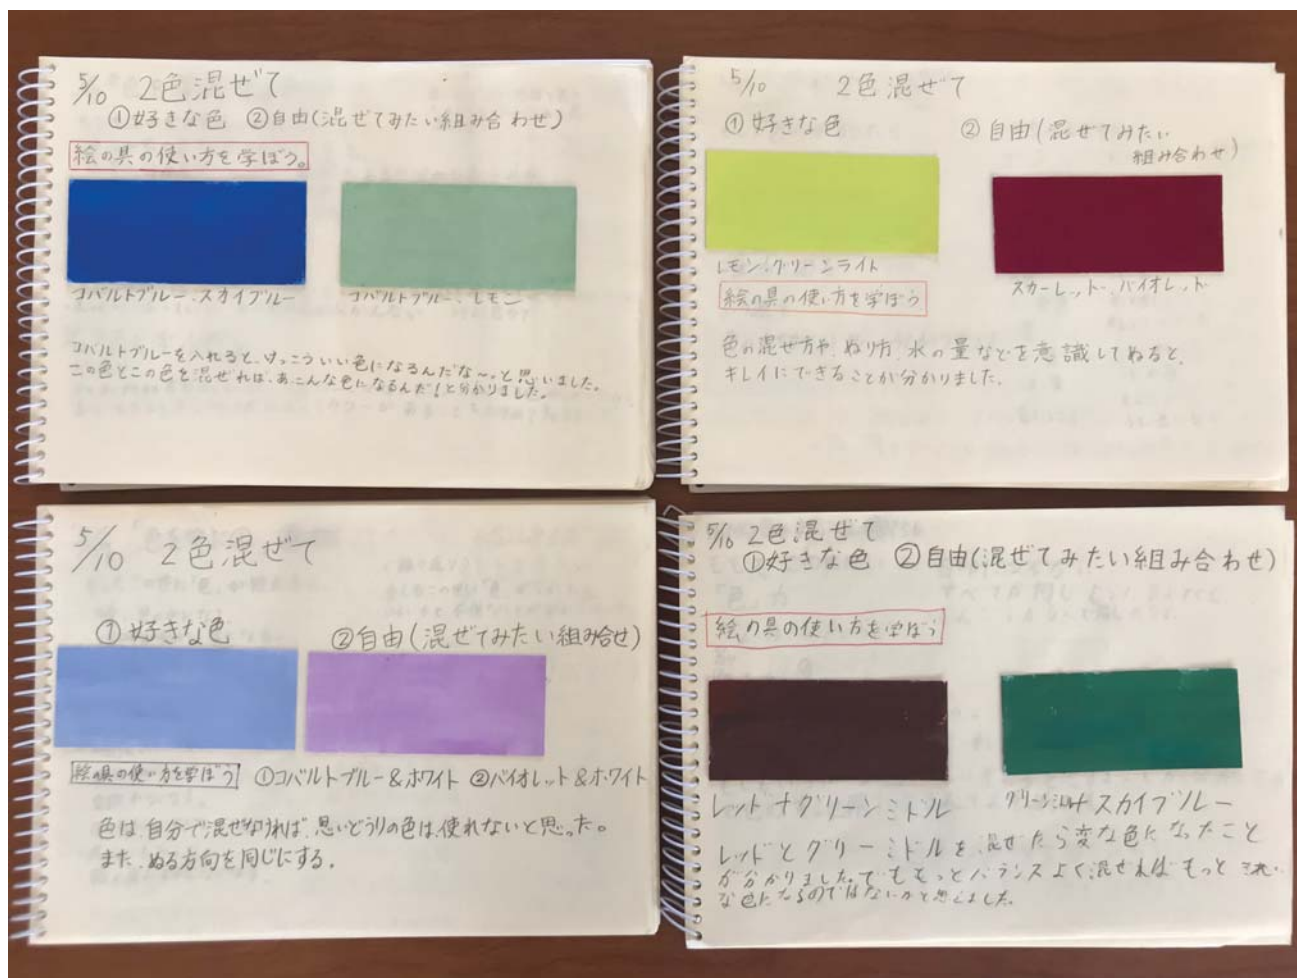 5/10 2色混ぜて
①好きな色 ②自由(混ぜてみたい組み合わせ)
絵の具の使い方を学ぼう。
コバルトブルー、スカイブルー
コバルトブルー、レモン
コバルトブルーを入れると、けっこういい色になるんだな〜。と思いました。
この色とこの色を混ぜれば、あ、こんな色になるんだ!と分かりました。
5/10 2色混ぜて
①好きな色
②自由(混ぜてみたい
組み合わせ)
レモン、グリーンライト
スカーレット、バイオレット
絵の具の使い方を学ぼう
色の混ぜ方や、ぬり方、水の量などを意識してぬると、
キレイにできることが分かりました。
5/10 2色混ぜて
①好きな色
②自由(混ぜてみたい組み合せ)
絵の具の使い方を学ぼう ①コバルトブルー&ホワイト ②バイオレット&ホワイト
色は、自分で混ぜなければ、思いどうりの色は、使れないと思った。
また、ぬる方向を同じにする。
5/10 2色混ぜて
①好きな色 ②自由(混ぜてみたい組み合わせ)
絵の具の使い方を学ぼう
レッド+グリーンミドル
スカイブルー
レッドとグリーンミドルを混ぜたら変な色になったこと
が分かりました。でももっとバランスよく混ぜればもっときれい
な色になるのではないかと思いました。